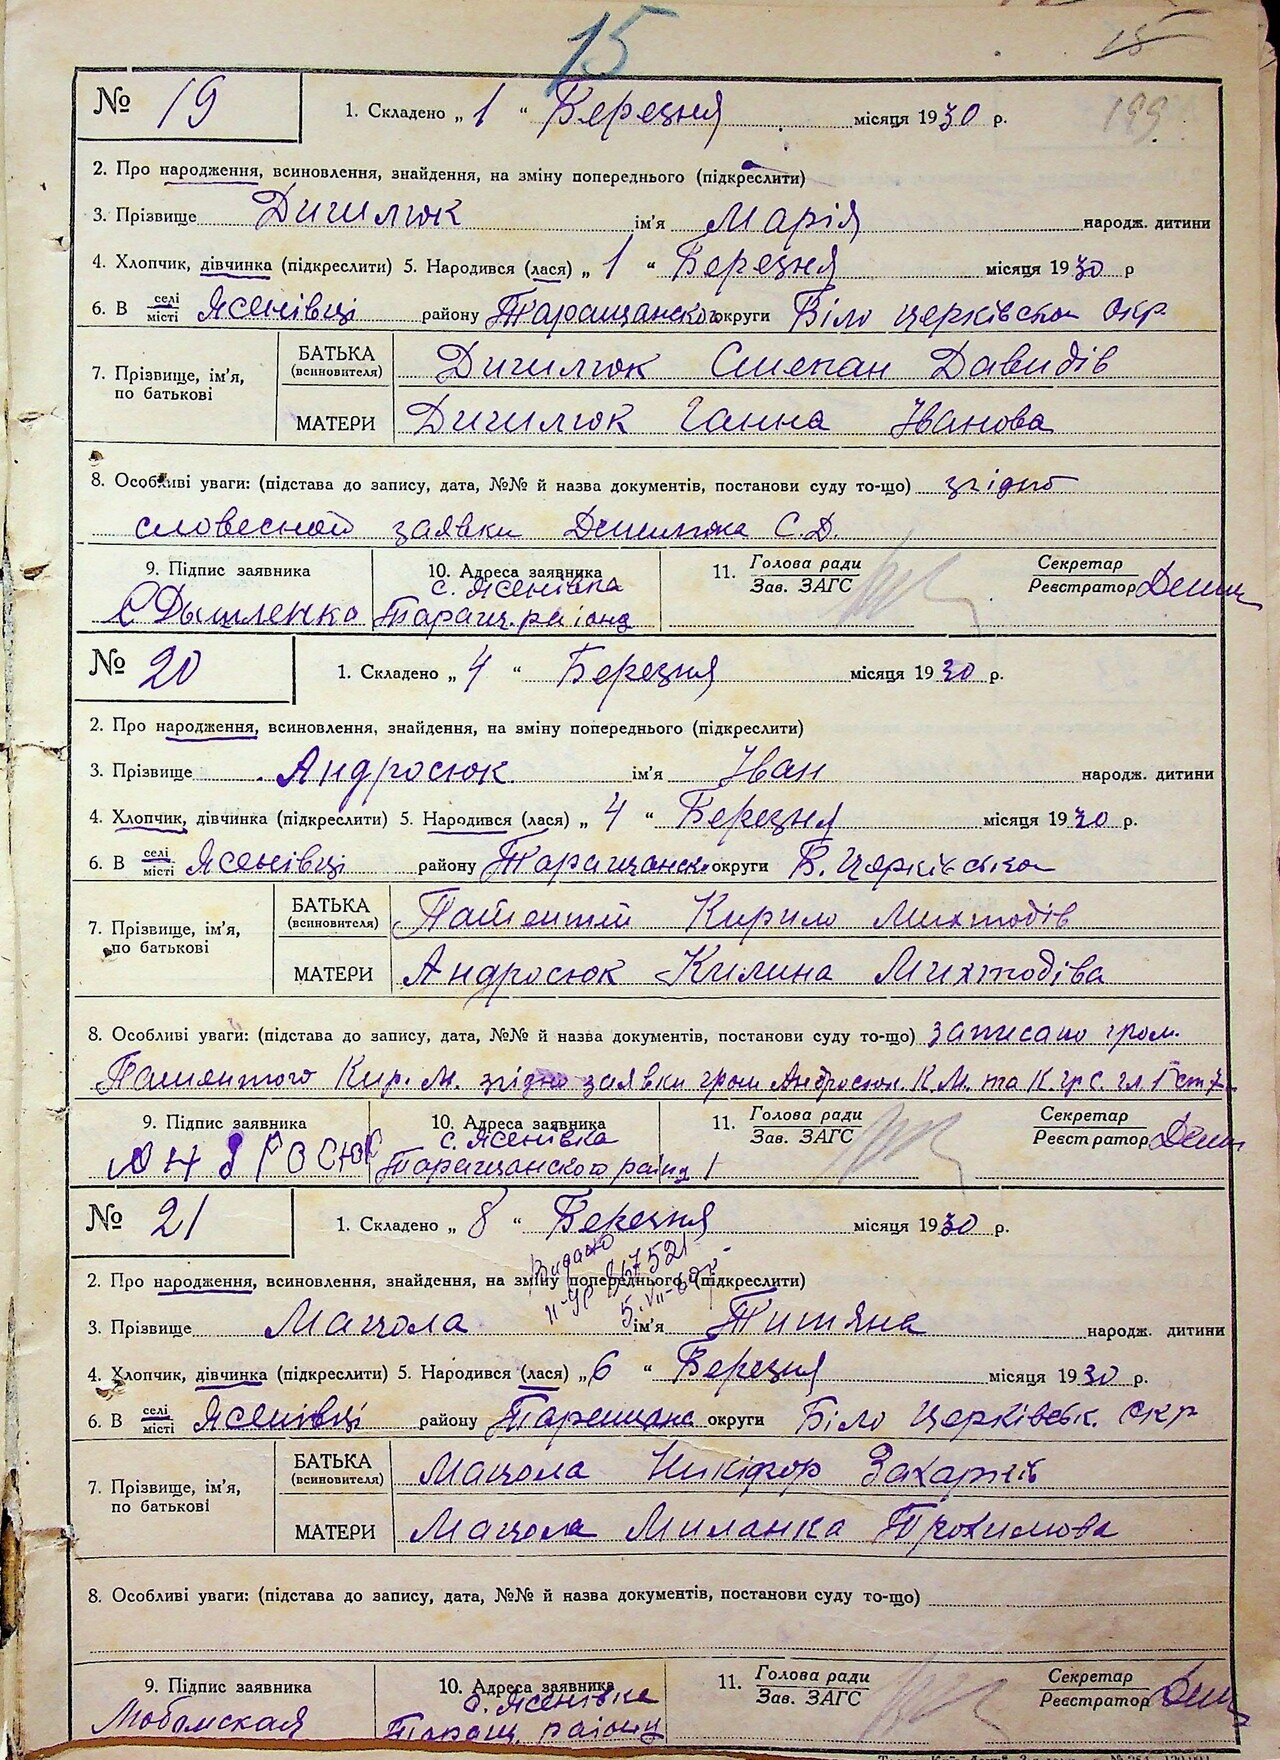 15
15
199
№ 19 1. Складено „ 1 “ Березня місяця 1930 р.
2. Про народження, всиновлення, знайдення, на зміну попереднього (підкреслити)
3. Прізвище ім'я Марія народж. дитини
4. Хлопчик, дівчинка (підкреслити) 5. Народився (лася) „ 1 “ Березня місяця 1930 р
6. В селі/місті Ясенівці району Таращанского округи Біло церківскои окр
7. Прізвище, ім'я, по батькові
БАТЬКА (всиновителя) Степан Давидів
МАТЕРИ Ганна Іванова
8. Особливі уваги: (підстава до запису, дата, №№ й назва документів, постанови суду то-що) згідно
словесной заявки С.Д.
9. Підпис заявника 10. Адреса заявника 11. Голова ради/Зав. ЗАГС Секретар/Реєстратор
с. Ясенівка
Таращ. району
№ 20 1. Складено „ 4 “ Березня місяця 1930 р.
2. Про народження, всиновлення, знайдення, на зміну попереднього (підкреслити)
3. Прізвище Андросюк ім'я Іван народж. дитини
4. Хлопчик, дівчинка (підкреслити) 5. Народився (лася) „ 4 “ Березня місяця 1930 р.
6. В селі/місті Ясенівці району Таращанск. округи Б. Церківська
7. Прізвище, ім'я, по батькові
БАТЬКА (всиновителя) Кирило
МАТЕРИ Андросюк Килина
8. Особливі уваги: (підстава до запису, дата, №№ й назва документів, постанови суду то-що) записано гром.
Кир. М. згідно заявки гром Андросюк К.М. та
9. Підпис заявника 10. Адреса заявника 11. Голова ради/Зав. ЗАГС Секретар/Реєстратор
с. Ясенівка
АНДРОСЮК Таращанского району
№ 21 1. Складено „ 8 “ Березня місяця 1930 р.
Видано
2. Про народження, всиновлення, знайдення, на зміну попереднього (підкреслити)
3. Прізвище Мацола ім'я Титяна народж. дитини
4. Хлопчик, дівчинка (підкреслити) 5. Народився (лася) „ 6 “ Березня місяця 1930 р.
6. В селі/місті Ясенівці району Таращанс округи Біло Церківськ. окр
7. Прізвище, ім'я, по батькові
БАТЬКА (всиновителя) Мацола Никіфор Захарків
МАТЕРИ Мацола Миланка Трохимова
8. Особливі уваги: (підстава до запису, дата, №№ й назва документів, постанови суду то-що)
9. Підпис заявника 10. Адреса заявника 11. Голова ради/Зав. ЗАГС Секретар/Реєстратор
с. Ясенівка
Таращ. району